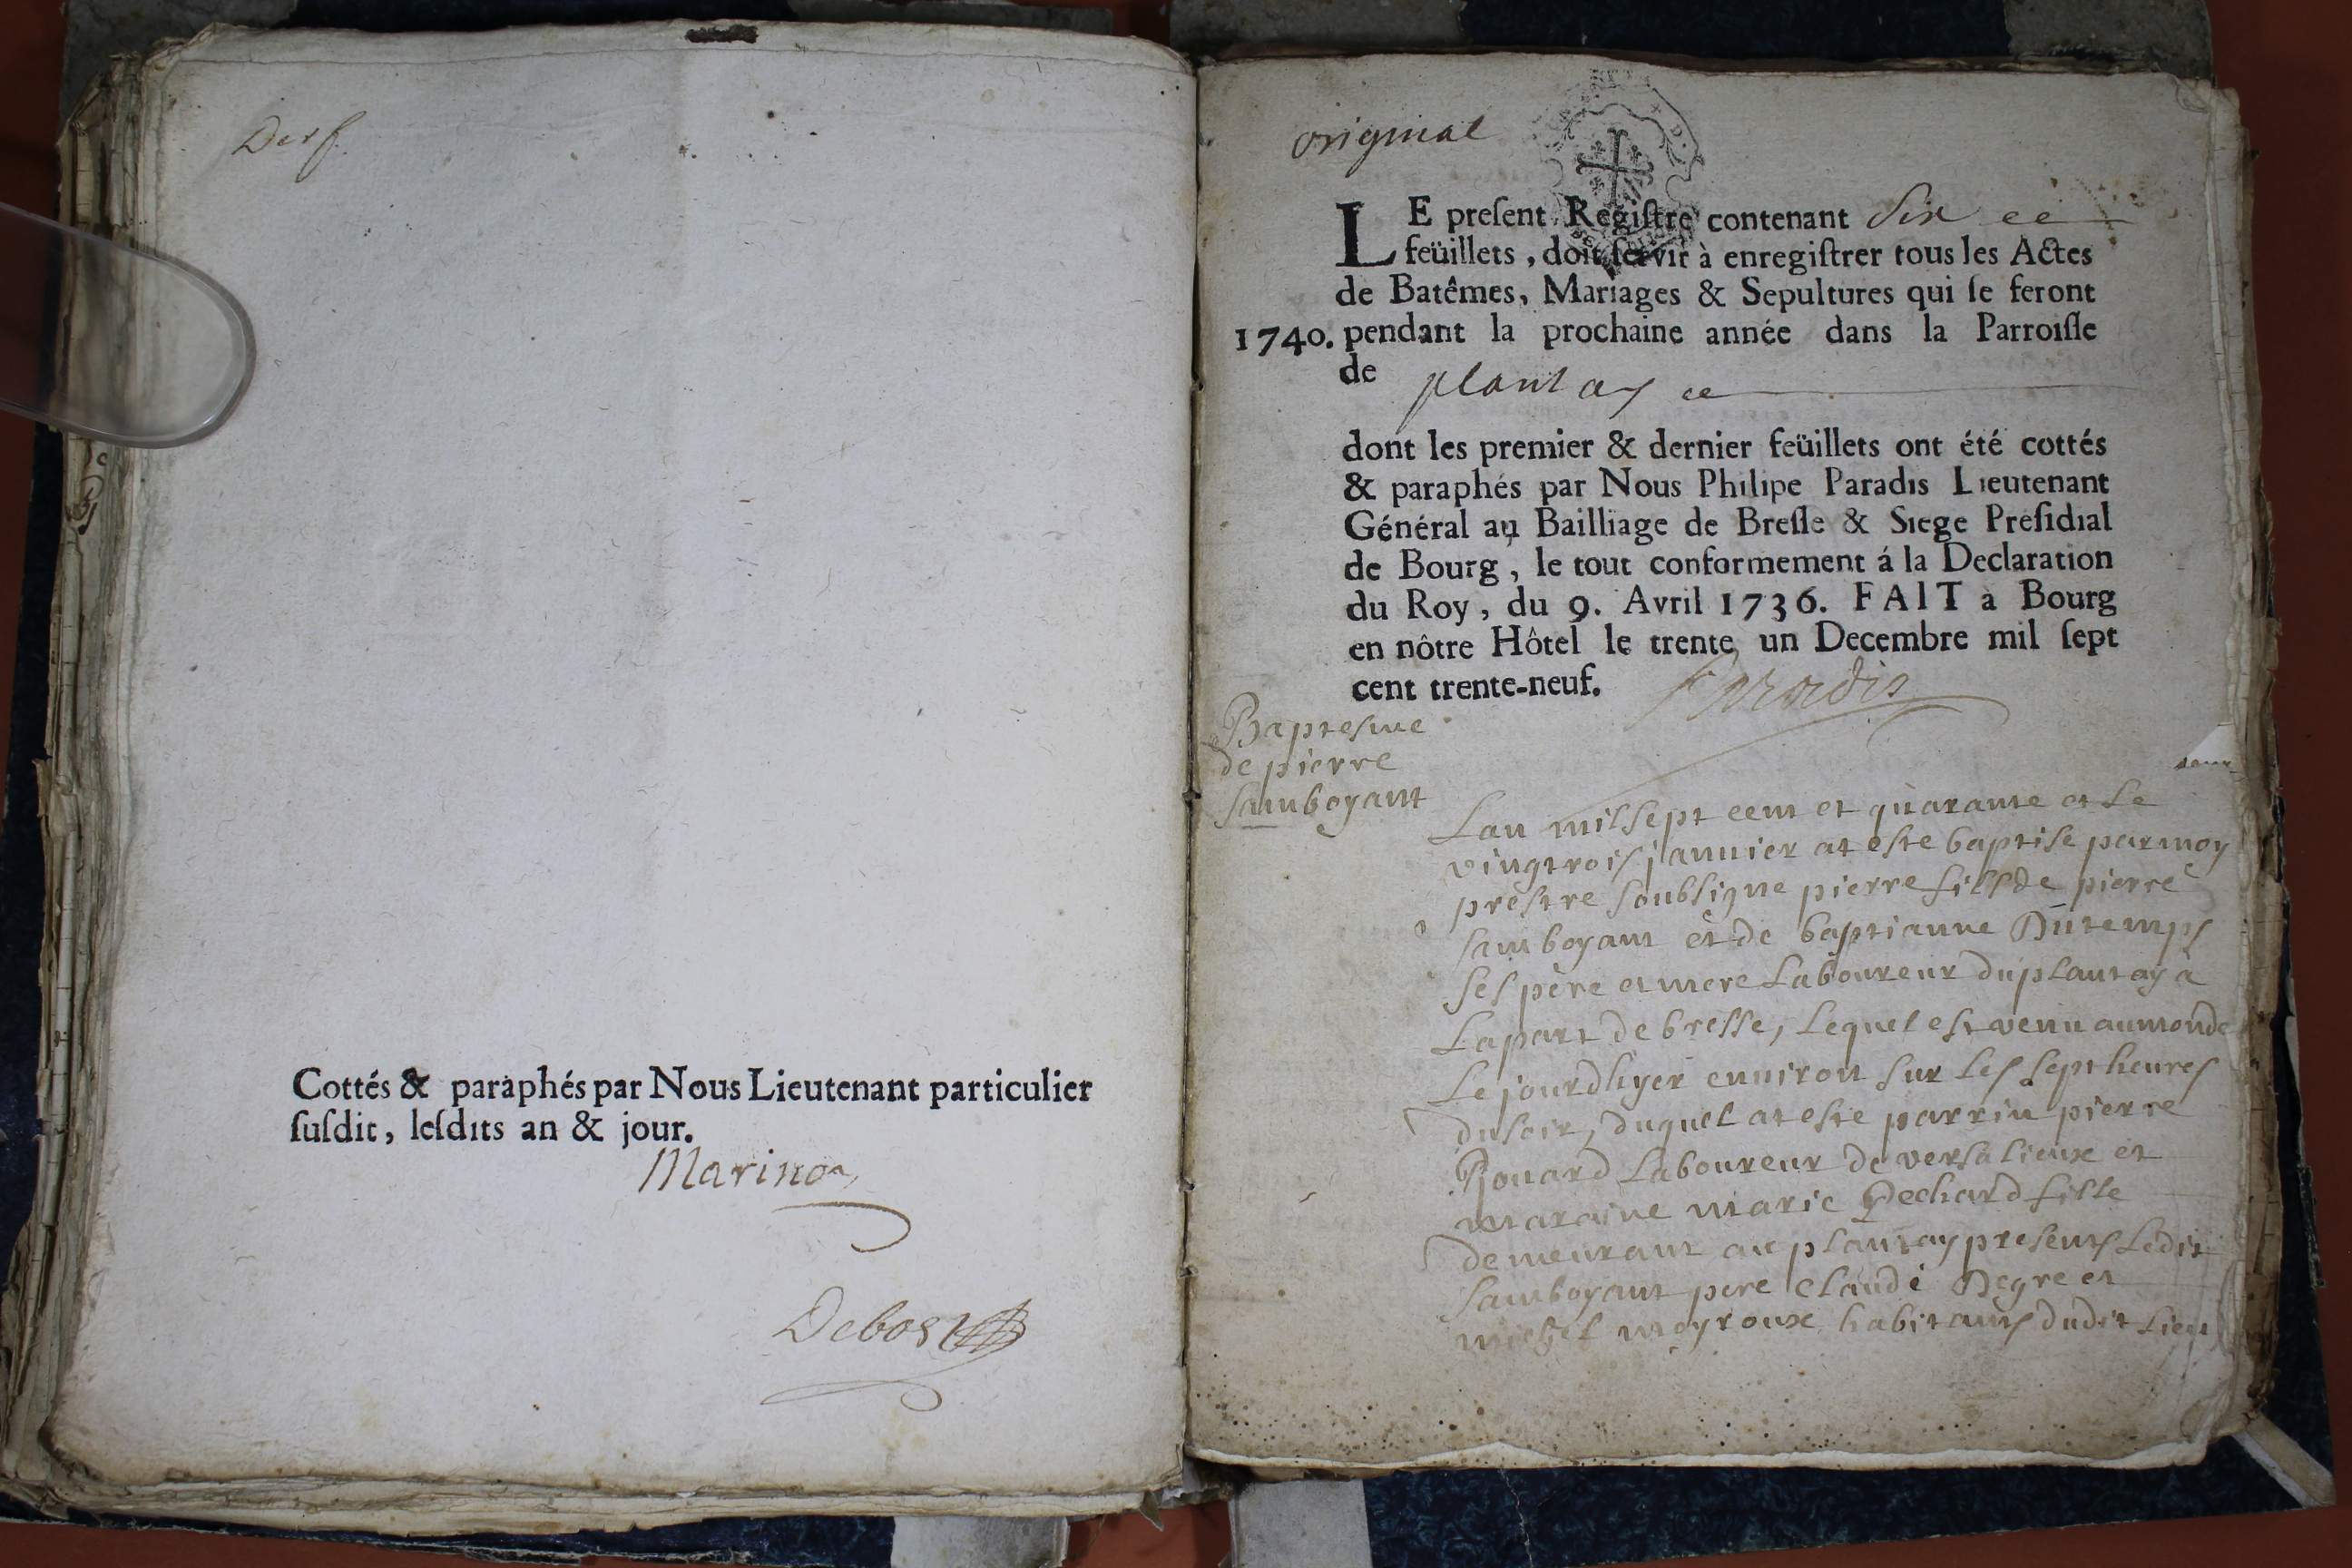 Cottés & paraphés par Nous Lieutenant particulier
ſuſdit, leſdits an & jour.
Marinon
Debost
original
LE preſent Regiſtre contenant Six
feüillets, doit ſervir à enregiſtrer tous les Actes
de Batêmes, Mariages & Sepultures qui ſe feront
1740. pendant la prochaine année dans la Parroiſſe
de plantay
dont les premier & dernier feüillets ont été cottés
& paraphés par Nous Philipe Paradis Lieutenant
Général au Bailliage de Breſſe & Siege Preſidial
de Bourg, le tout conformement á la Declaration
du Roy, du 9. Avril 1736. FAIT à Bourg
en nôtre Hôtel le trente un Decembre mil ſept
cent trente-neuf. Paradis
Baptesme
de pierre
samboyant
Lan mil sept cent et quarante et le
vingtrois jannier at este baptise par moy
prestre soubsigne pierre fils de pierre
samboyant et de baptianne Dutemps
ses père et mere Laboureur du plantay a
La part de bresse, Lequel est venu au monde
Le jourdhyer environ sur les sept heures
du soir, duquel at este parrin pierre
Laboureur de versalieux et
maraine marie Pechard fille
demeurant au plantay presents Ledit
samboyant pere Claude Degre et
michel moyroux habitants dudit Lieu